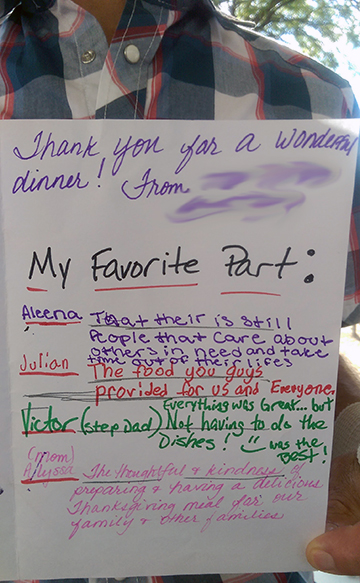 Thank you for a wonderful
dinner! From
My Favorite Part:
Aleena That their is still
People that care about
others in need and take
time out of their lifes
Julian The food you guys
provided for us and Everyone.
Everything was Great... but
Victor (step Dad) Not having to do the
Dishes! was the
Best!
(mom)
Alyssa The thoughtful & kindness of
preparing & having a delicious
Thanksgiving meal for our
family & other families